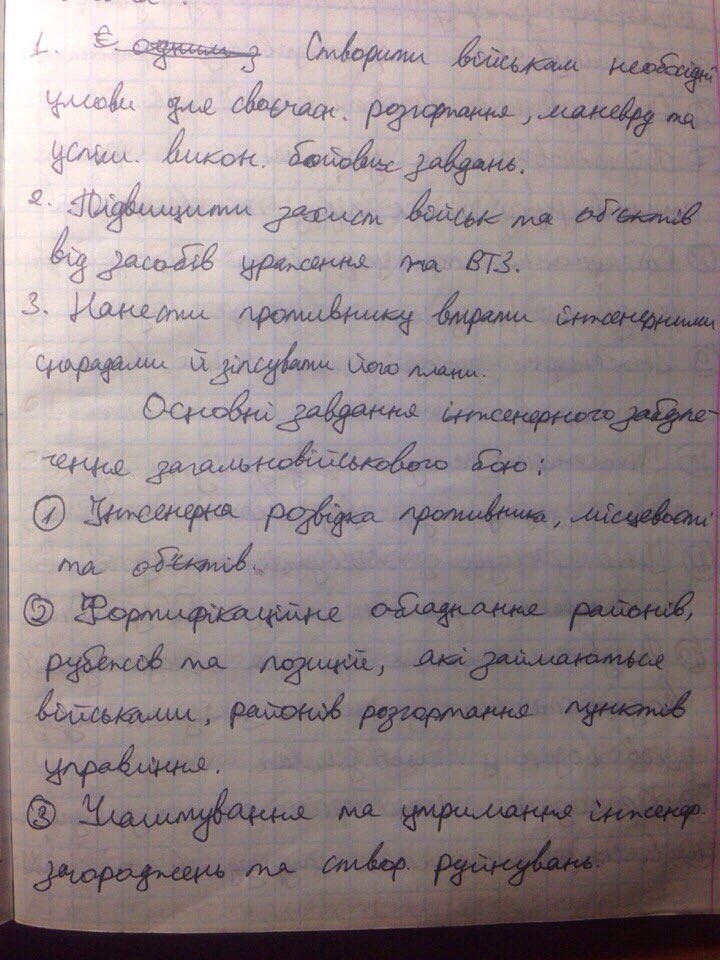 1. Є одним з Створити військам необхідні
умови для своєчасн. розгортання, маневру та
успіш. викон. бойових завдань.
2. Підвищити захист військ та об'єктів
від засобів ураження та ВТЗ.
3. Нанести противнику втрати інженерними
снарядами й зіпсувати його плани.
Основні завдання інженерного забезпе-
чення загальновійськового бою:
① Інженерна розвідка противника, місцевості
та об'єктів.
② Фортифікаційне обладнання районів,
рубежів та позицій, які займаються
військами, районів розгортання пунктів
управління.
③ Улаштування та утримання інженер.
загороджень та створ. руйнувань.